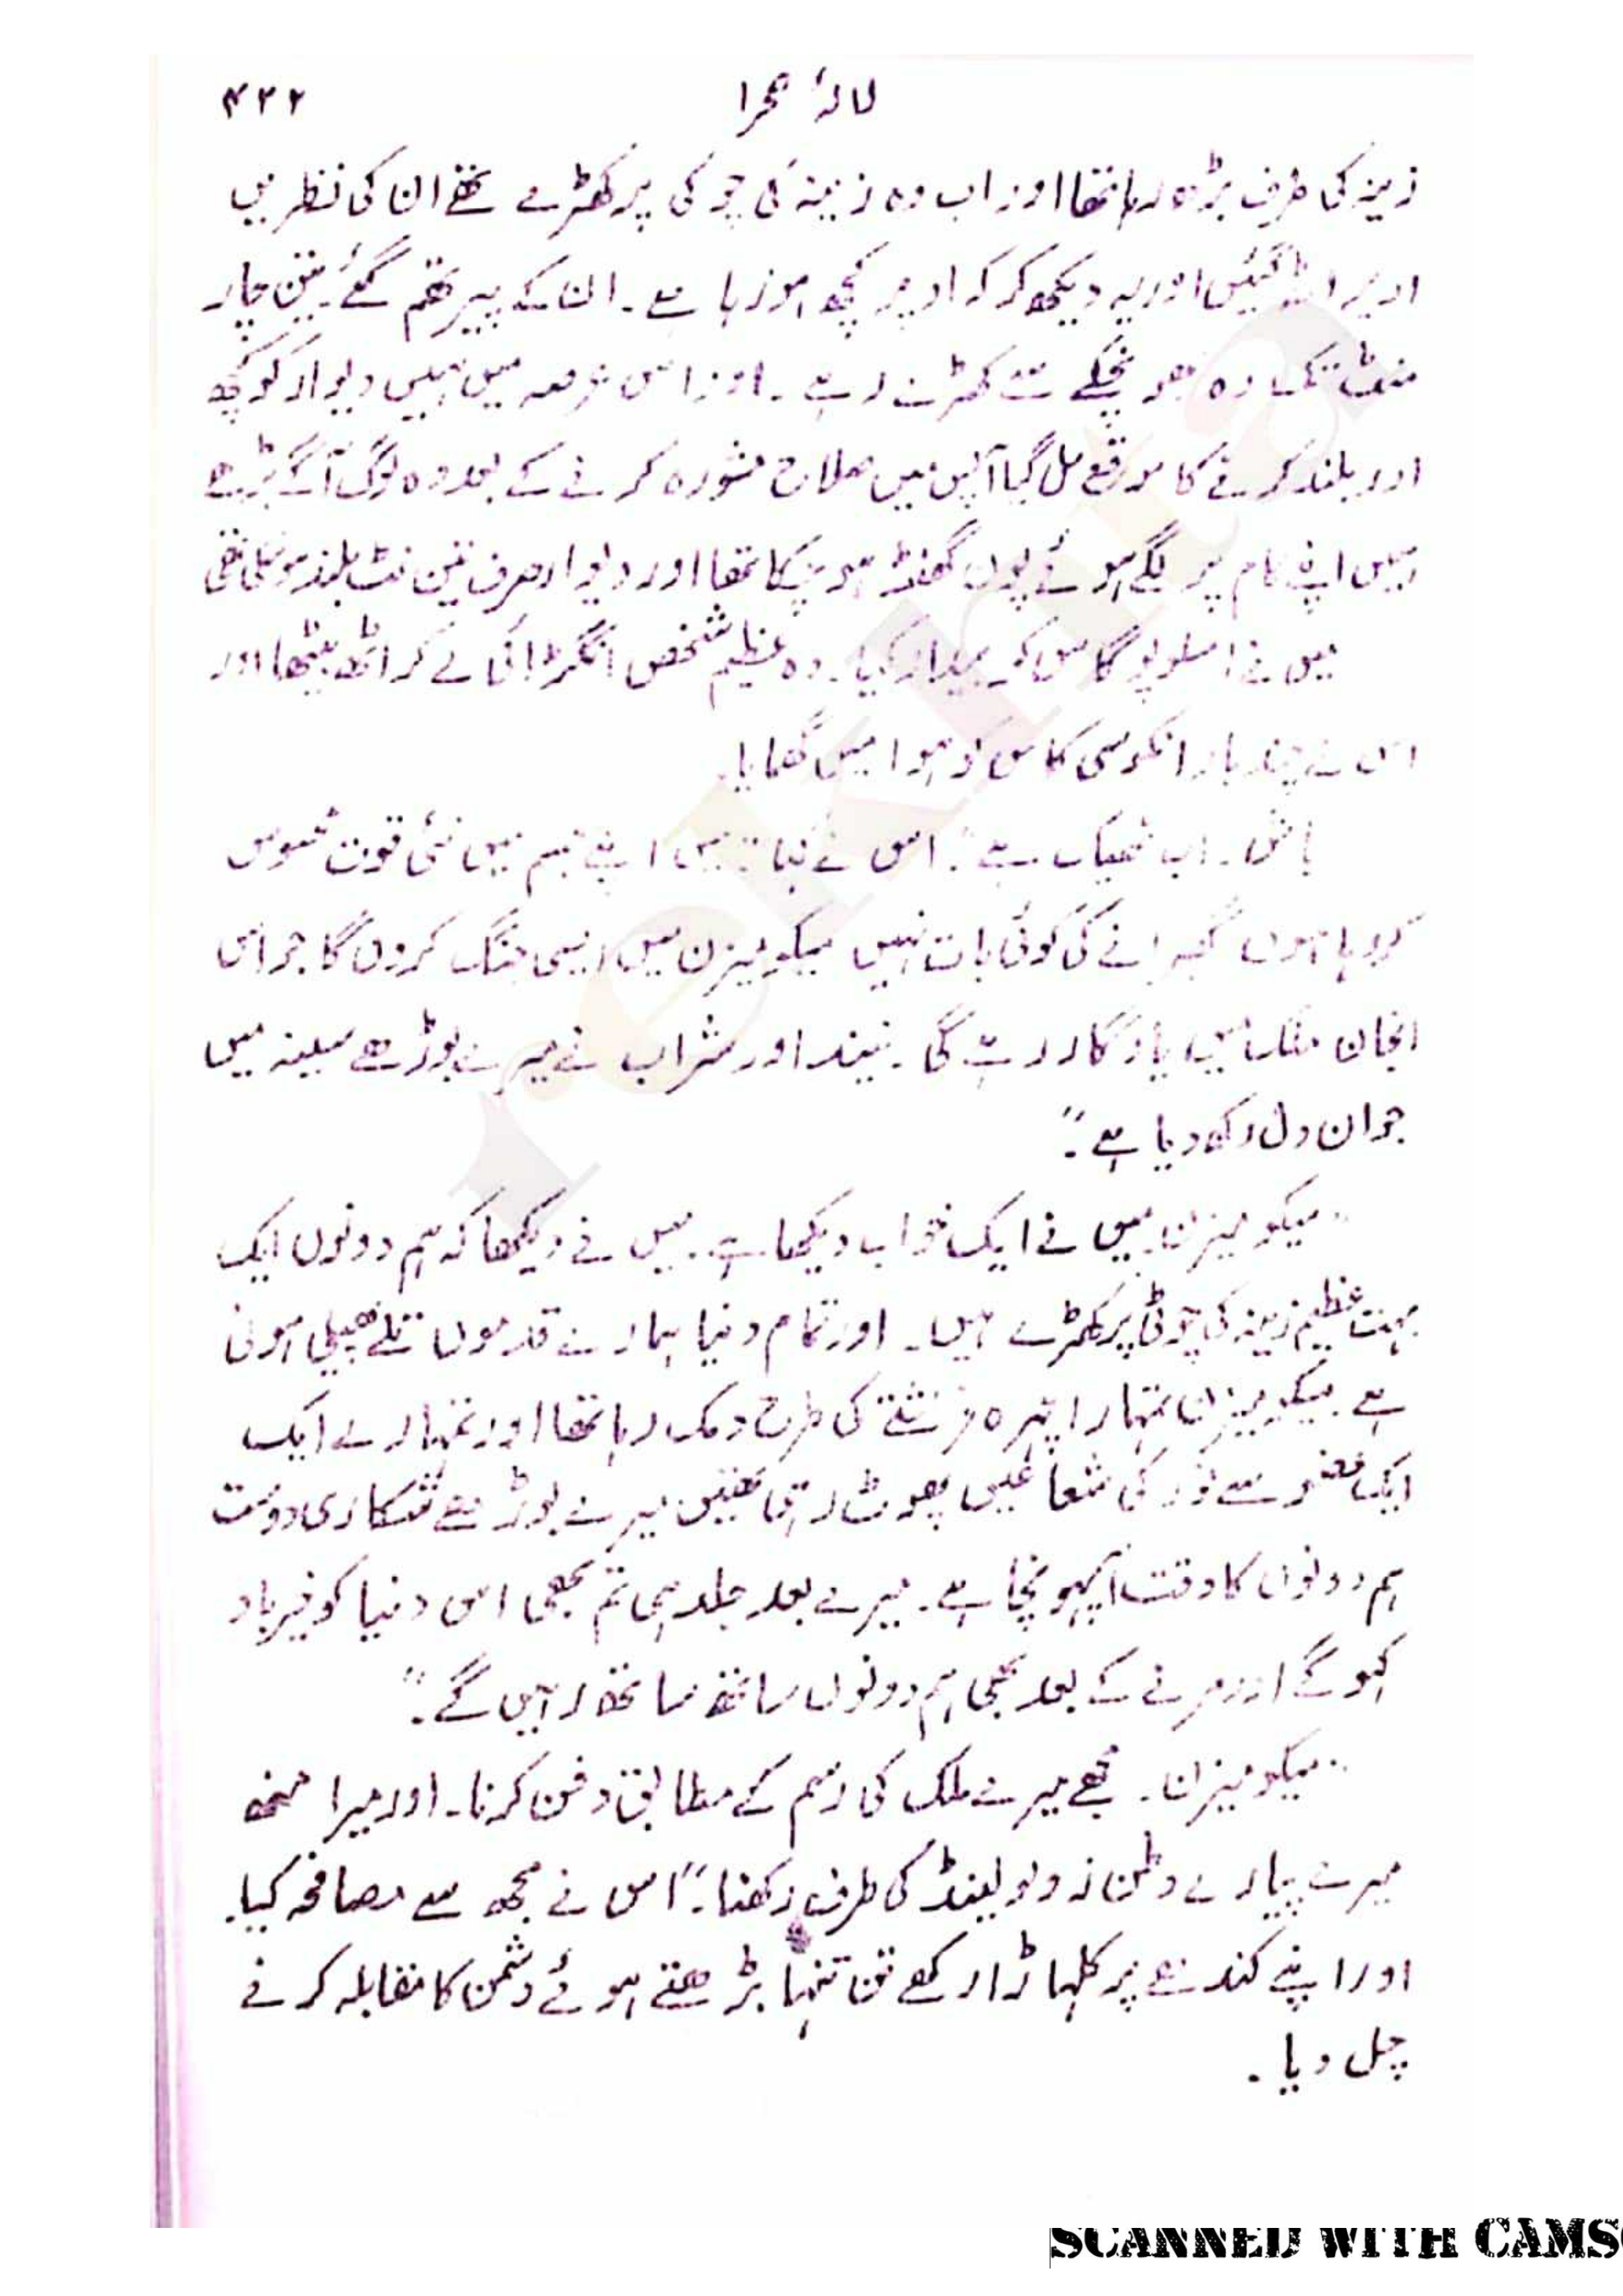 لالۂ صحرا ۴۲۲
زینہ کی طرف بڑھ رہا تھا اور اب وہ زینہ کی چوکی پر کھڑے تھے ان کی نظریں
اوپر اٹھ گئیں اور یہ دیکھ کر کہ اوپر کچھ ہو رہا ہے۔ ان کے پیر تھم گئے۔ تین چار
منٹ تک وہ بھونچکے سے کھڑے رہے۔ اور اس عرصہ میں ہمیں دیوار کو کچھ
اور بلند کرنے کا موقع مل گیا آپس میں صلاح مشورہ کرنے کے بعد وہ لوگ آگے بڑھے
ہمیں اپنے کام پر لگے ہوئے پون گھنٹہ ہو چکا تھا اور دیوار صرف تین فٹ بلند ہو سکی تھی
میں نے امسلوپوگاس کو بیدار کیا۔ وہ عظیم شخص انگڑائی لے کر اٹھ بیٹھا اور
اس نے چند بار انکوسی کاس کو ہوا میں گھمایا۔
ہاں۔ اب ٹھیک ہے"۔ اس نے کہا "میں اپنے جسم میں نئی قوت محسوس
کر رہا ہوں گھبرانے کی کوئی بات نہیں میکومیزن میں ایسی جنگ کروں گا جو اس
انجان ملک میں یادگار رہے گی۔ نیند اور شراب نے میرے بوڑھے سینہ میں
جوان دل رکھ دیا ہے۔"
"میکومیزن۔ میں نے ایک خواب دیکھا ہے۔ میں نے دیکھا کہ ہم دونوں ایک
بہت عظیم زینہ کی چوٹی پر کھڑے ہیں۔ اور تمام دنیا ہمارے قدموں تلے پھیلی ہوئی
ہے میکومیزن تمہارا چہرہ فرشتے کی طرح دمک رہا تھا اور تمہارے ایک
ایک عضو سے نور کی شعاعیں پھوٹ رہی تھیں میرے بوڑھے شکاری دوست
ہم دونوں کا وقت آپہونچا ہے۔ میرے بعد جلد ہی تم بھی اس دنیا کو خیرباد
کہو گے اور مرنے کے بعد بھی ہم دونوں ساتھ ساتھ رہیں گے۔"
"میکومیزن۔ مجھے میرے ملک کی رسم کے مطابق دفن کرنا۔ اور میرا منھ
میرے پیارے وطن زولولینڈ کی طرف رکھنا۔" اس نے مجھ سے مصافحہ کیا۔
اور اپنے کندھے پر کلہاڑا رکھے تن تنہا بڑھتے ہوئے دشمن کا مقابلہ کرنے
چل دیا۔
rekhta
SCANNED WITH CAMS